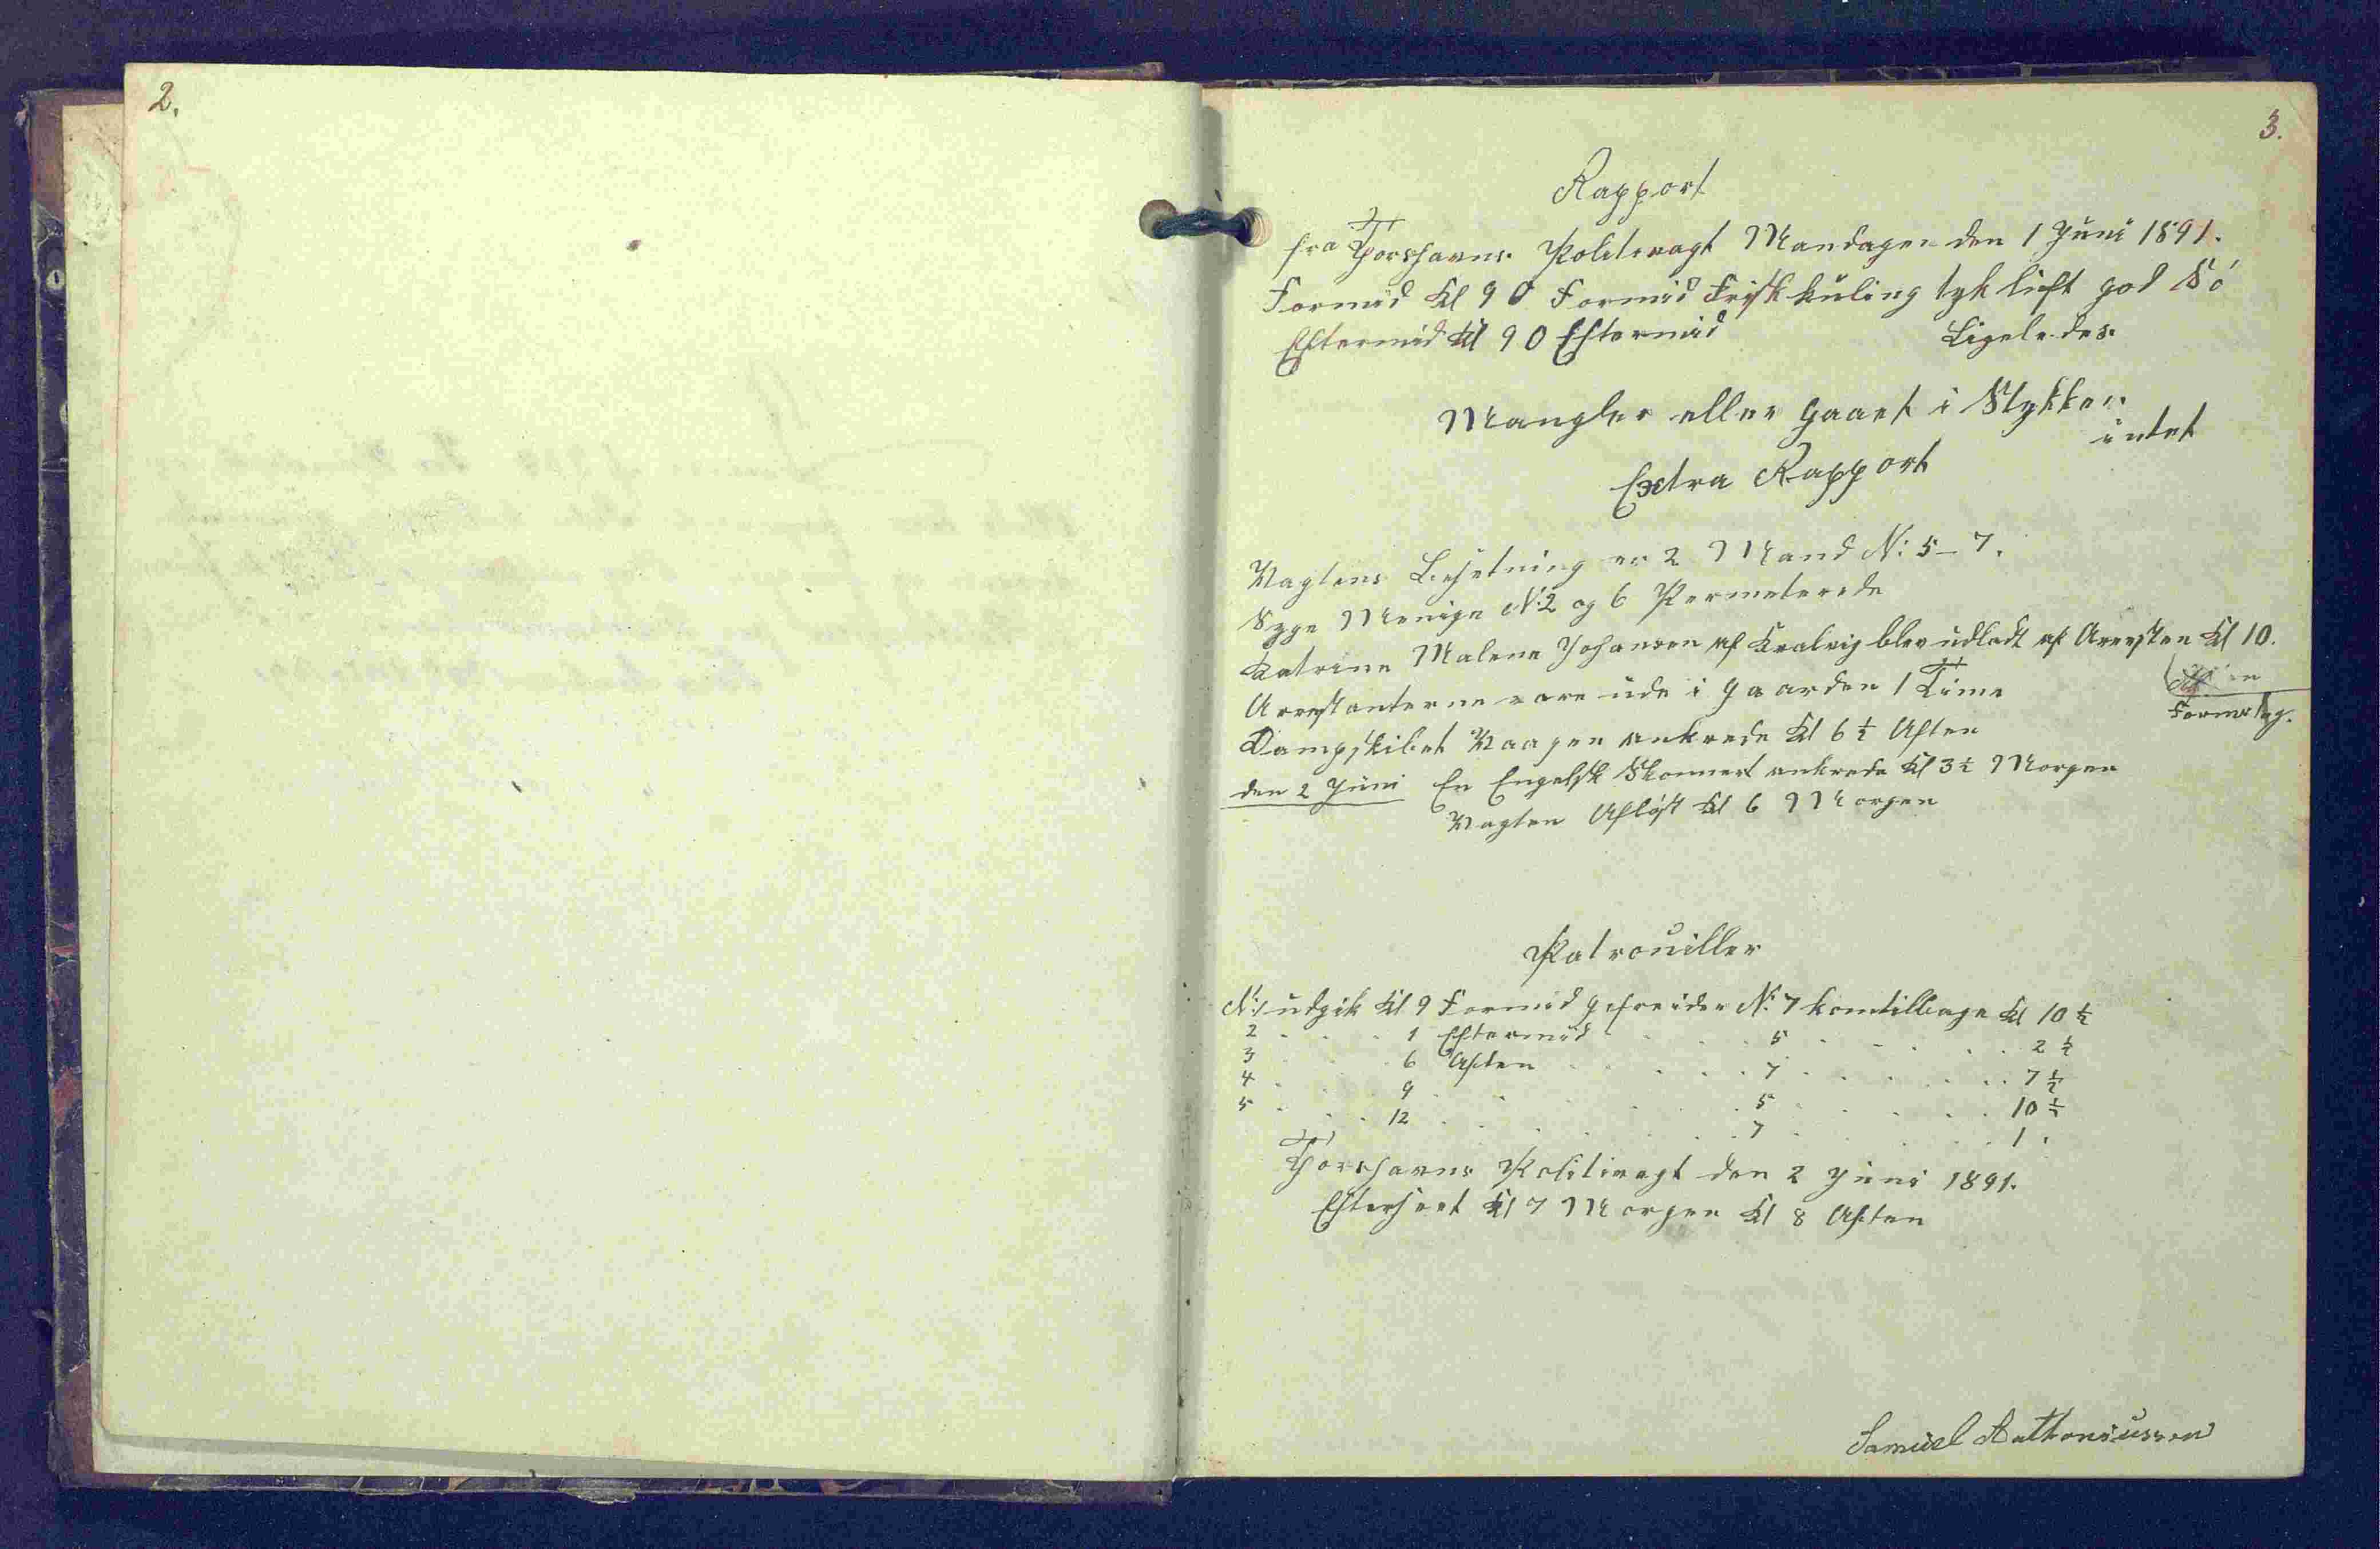 2.
3.
Rapport
fra Thorshavns Politivagt Mandagen den 1 Juni 1891.
Formid Kl 9 O Formid Frisk kuling tyk luft god Sö
Eftermid Kl 9 O Eftermid Ligeledes.
Mangler eller Gaaet i Stykker.
intet
Extra Rapport
Vagtens Besetning er 2 Mand N: 5 - 7.
Syge Menige N: 2 og 6 Permeterede
Katrine Malene Johansen af Kvalvig blev udladt af Arresten Kl 10.
Formidag.
Arrestanterne vare ude i Gaarden 1 Time
Dampskibet Vaagen ankrede Kl 6 ½ Aften
den 2 Juni En Engelsk Skonnert ankrede Kl 3 ½ Morgen
Vagten Aflöst Kl 6 Morgen
Patrouiller
N: 1 udgik Kl 9 Formid Gefreider N: 7 kom tilbage Kl 10 ½
2 . . . . 1 Eftermid . . . . 5 . . . . . 2 ½
3 . . . . 6 Aften . . . . 7 . . . . . 7 ½
4 . . . . 9 . . . . . 5 . . . . . 10 ½
5 . . . . 12 . . . . . 7 . . . . . 1 .
Thorshavns Politivagt den 2 Juni 1891.
Efterseet Kl 7 Morgen Kl 8 Aften
Samuel Anthoniussen